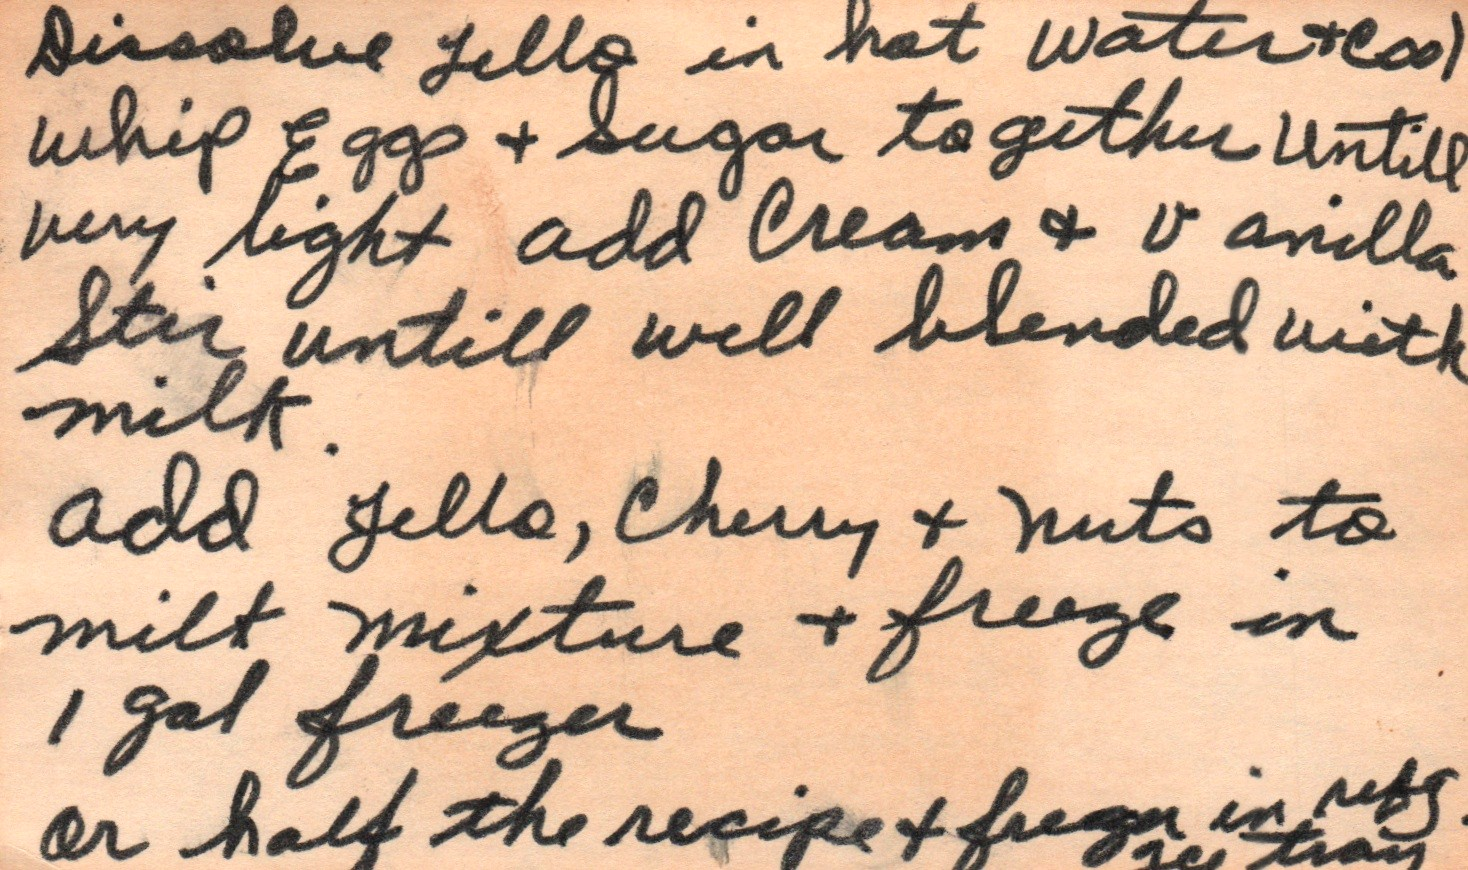 Dissolve Jello in hot water + Cool
whip Eggs + Sugar together Untill
very light add Cream + Vanilla
Stir untill well blended with
milk.
add Jello, Cherry + nuts to
milk mixture + freeze in
1 gal freezer
or half the recipe + freeze in refg.
ice tray